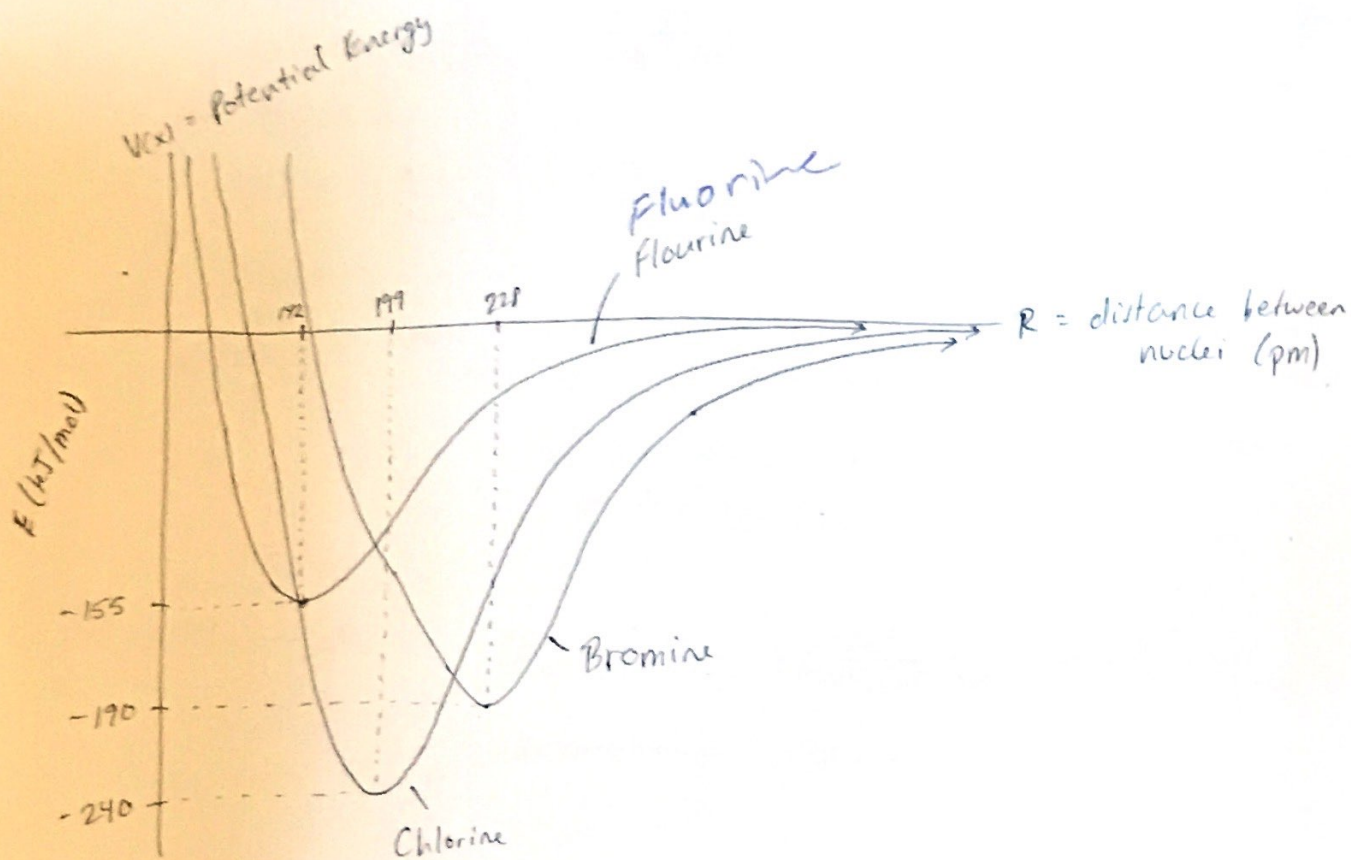 V(x) = Potential Energy
Fluorine
Flourine
199
228
R = distance between
nuclei (pm)
E (kJ/mol)
-155
-190
-240
Bromine
Chlorine